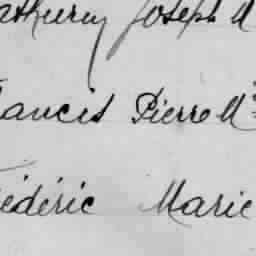 athurin Joseph M
rancis Pierre M
édéric Marie